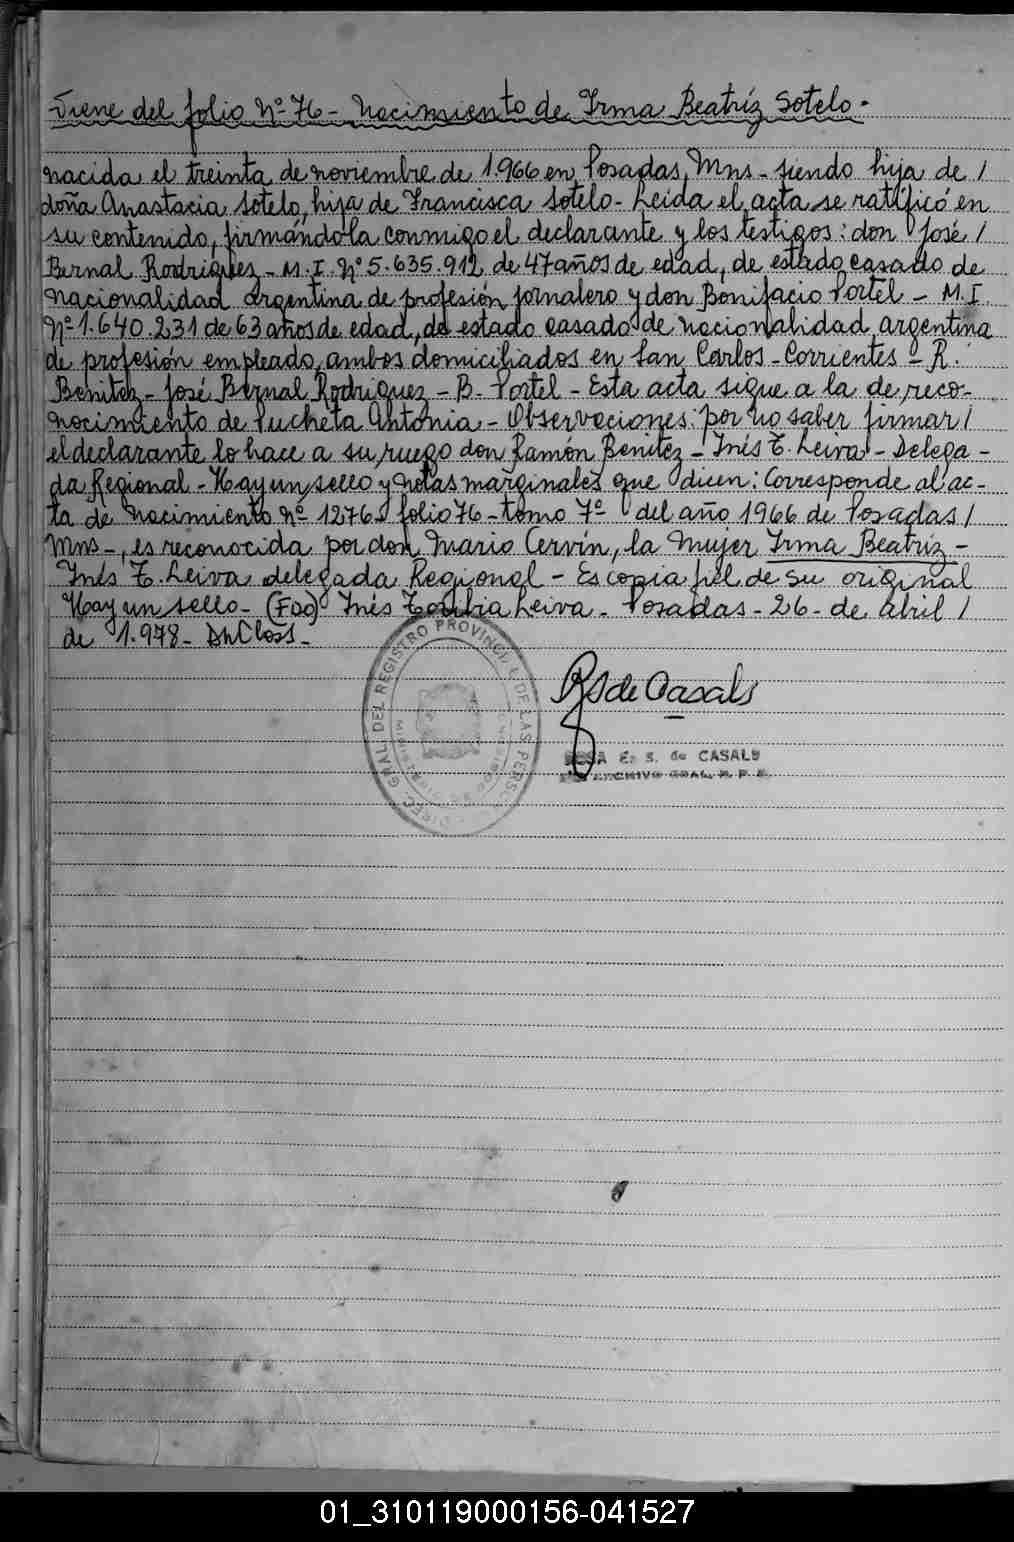 Viene del folio Nº 76 - Nacimiento de Irma Beatríz Sotelo.
nacida el treinta de noviembre de 1.966 en Posadas, Mns - siendo hija de /
doña Anastacia Sotelo, hija de Francisca Sotelo - Leida el acta se ratificó en
su contenido, firmándola conmigo el declarante y los testigos: don José /
Bernal Rodriguez - M. I. Nº 5.635.912 de 47 años de edad, de estado casado de
nacionalidad argentina de profesión jornalero y don Bonifacio Portel - M. I.
Nº 1.640.231 de 63 años de edad, de estado casado de nacionalidad argentina
de profesión empleado, ambos domiciliados en San Carlos - Corrientes - R.
Benitez - José Bernal Rodriguez - B. Portel - Esta acta sigue a la de reco-
nocimiento de Pucheta Antonia - Observaciones: por no saber firmar /
el declarante lo hace a su ruego don Ramón Benitez - Inés T. Leiva - Delega-
da Regional - Hay un sello y notas marginales que dicen: Corresponde al ac-
ta de nacimiento nº 1276 folio 76 - tomo 7º del año 1966 de Posadas /
Mns -, es reconocida por don Mario Cervín, la mujer Irma Beatríz -
Inés T. Leiva delegada Regional - Es copia fiel de su original
Hay un sello - (FDO) Inés Toribia Leiva - Posadas - 26 - de abril /
de 1.978 -
DIREC. GRAL. DEL REGISTRO PROVINCIAL DE LAS PERSONAS
MISIONES
de Casals
ROSA E. S. de CASALS
ARCHIVO GRAL. R. P. P.
01_310119000156-041527